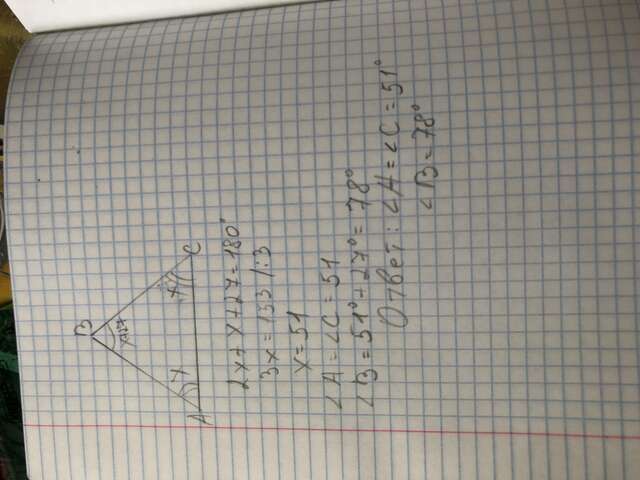 B
x+27
A
x
x
C
2x+x+27=180°
3x=153 /:3
x=51
∠A=∠C=51
∠B=51°+27°=78°
Ответ: ∠A=∠C=51°
∠B=78°